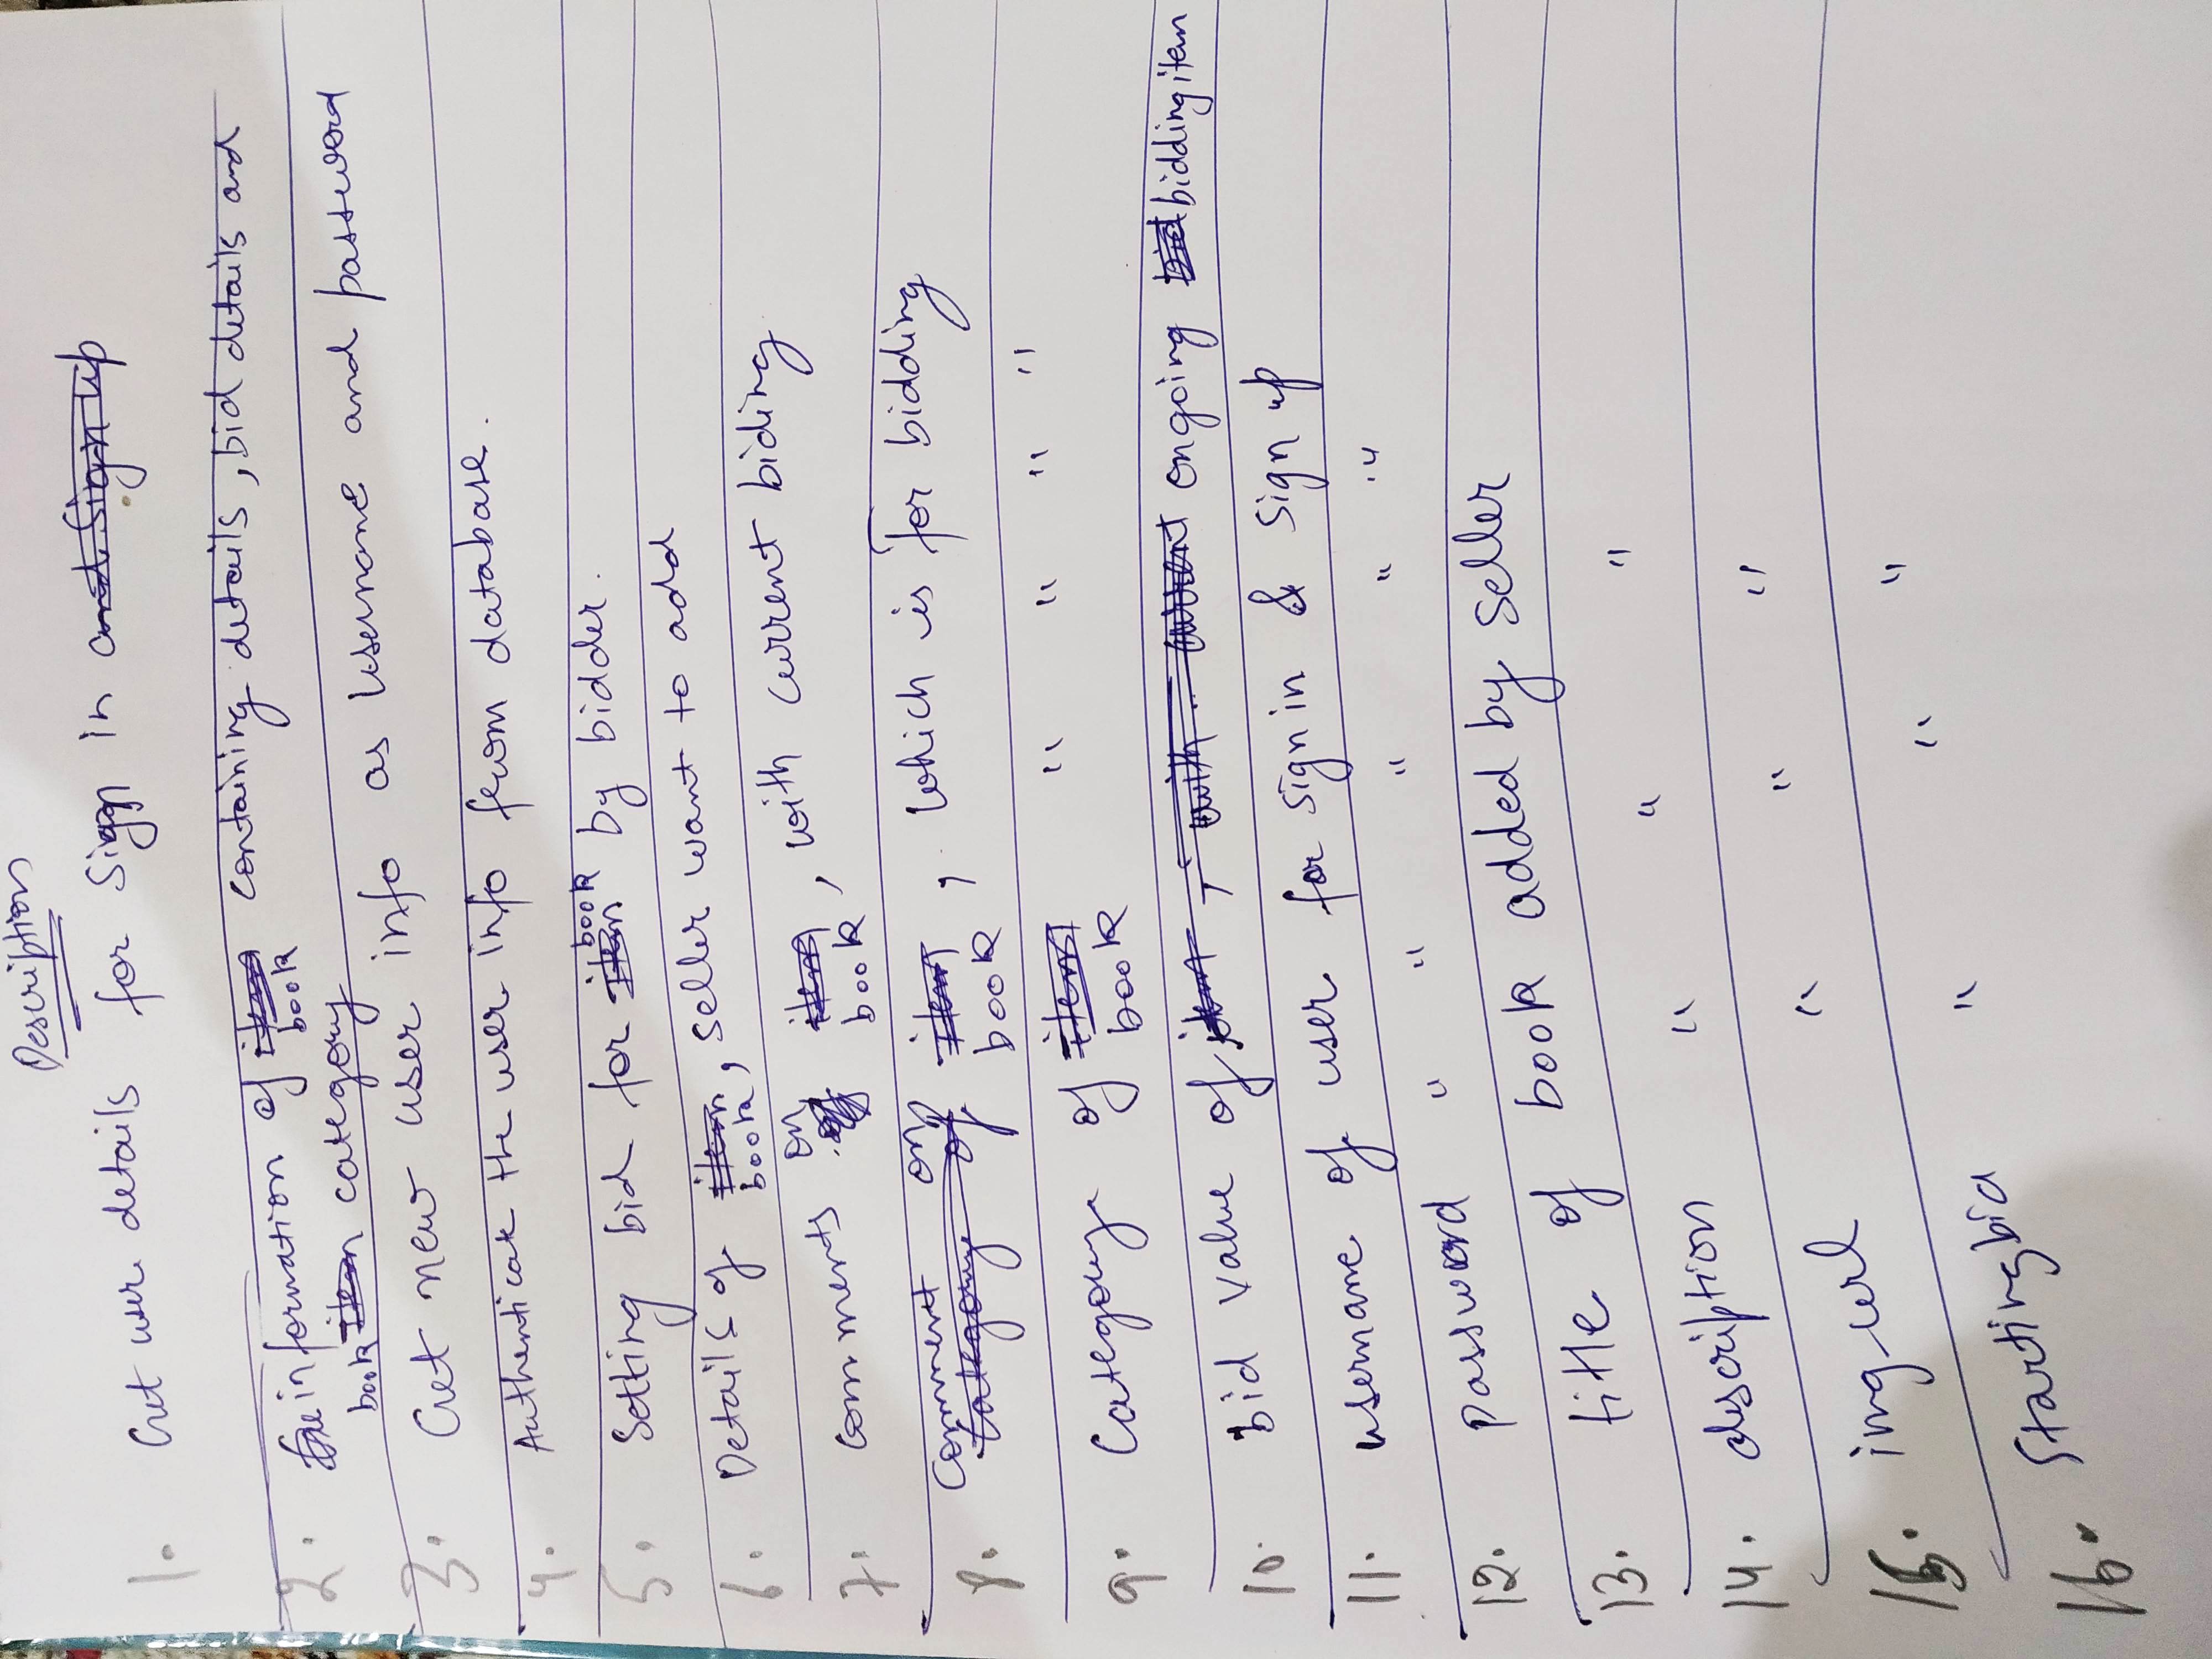 Description
1. Get user details for Sign in and Sign up
2. information of item containing details, bid details and
book
book item category
3. Get new user info as Username and password
4. Authenticate the user info from database.
5. Setting bid for item book by bidder.
6. Details of item, seller want to add
book
7. comments on item, with current biding
book
8. Comment on item, which is for bidding
Category of book
9. Category of item " " " "
book
10. bid value of item, with current ongoing bid bidding item
11. username of user for sign in & sign up
12. password " " " " "
13. title of book added by seller
14. description " " "
15. img_url " " "
16. Startingbid " " "